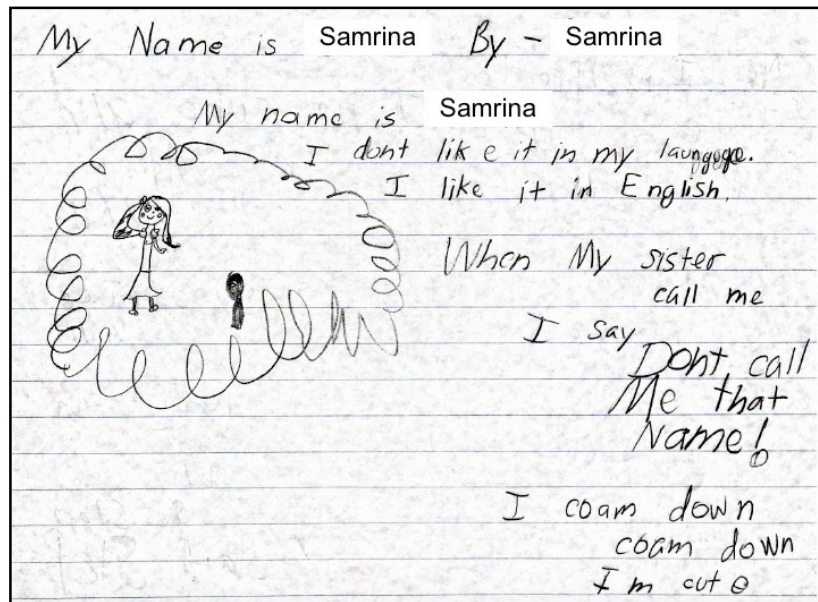 My Name is Samrina By - Samrina
My name is Samrina
I dont like it in my laungoge.
I like it in English.
When My sister
call me
I say
Dont call
Me that
Name!
I coam down
coam down
I m cute